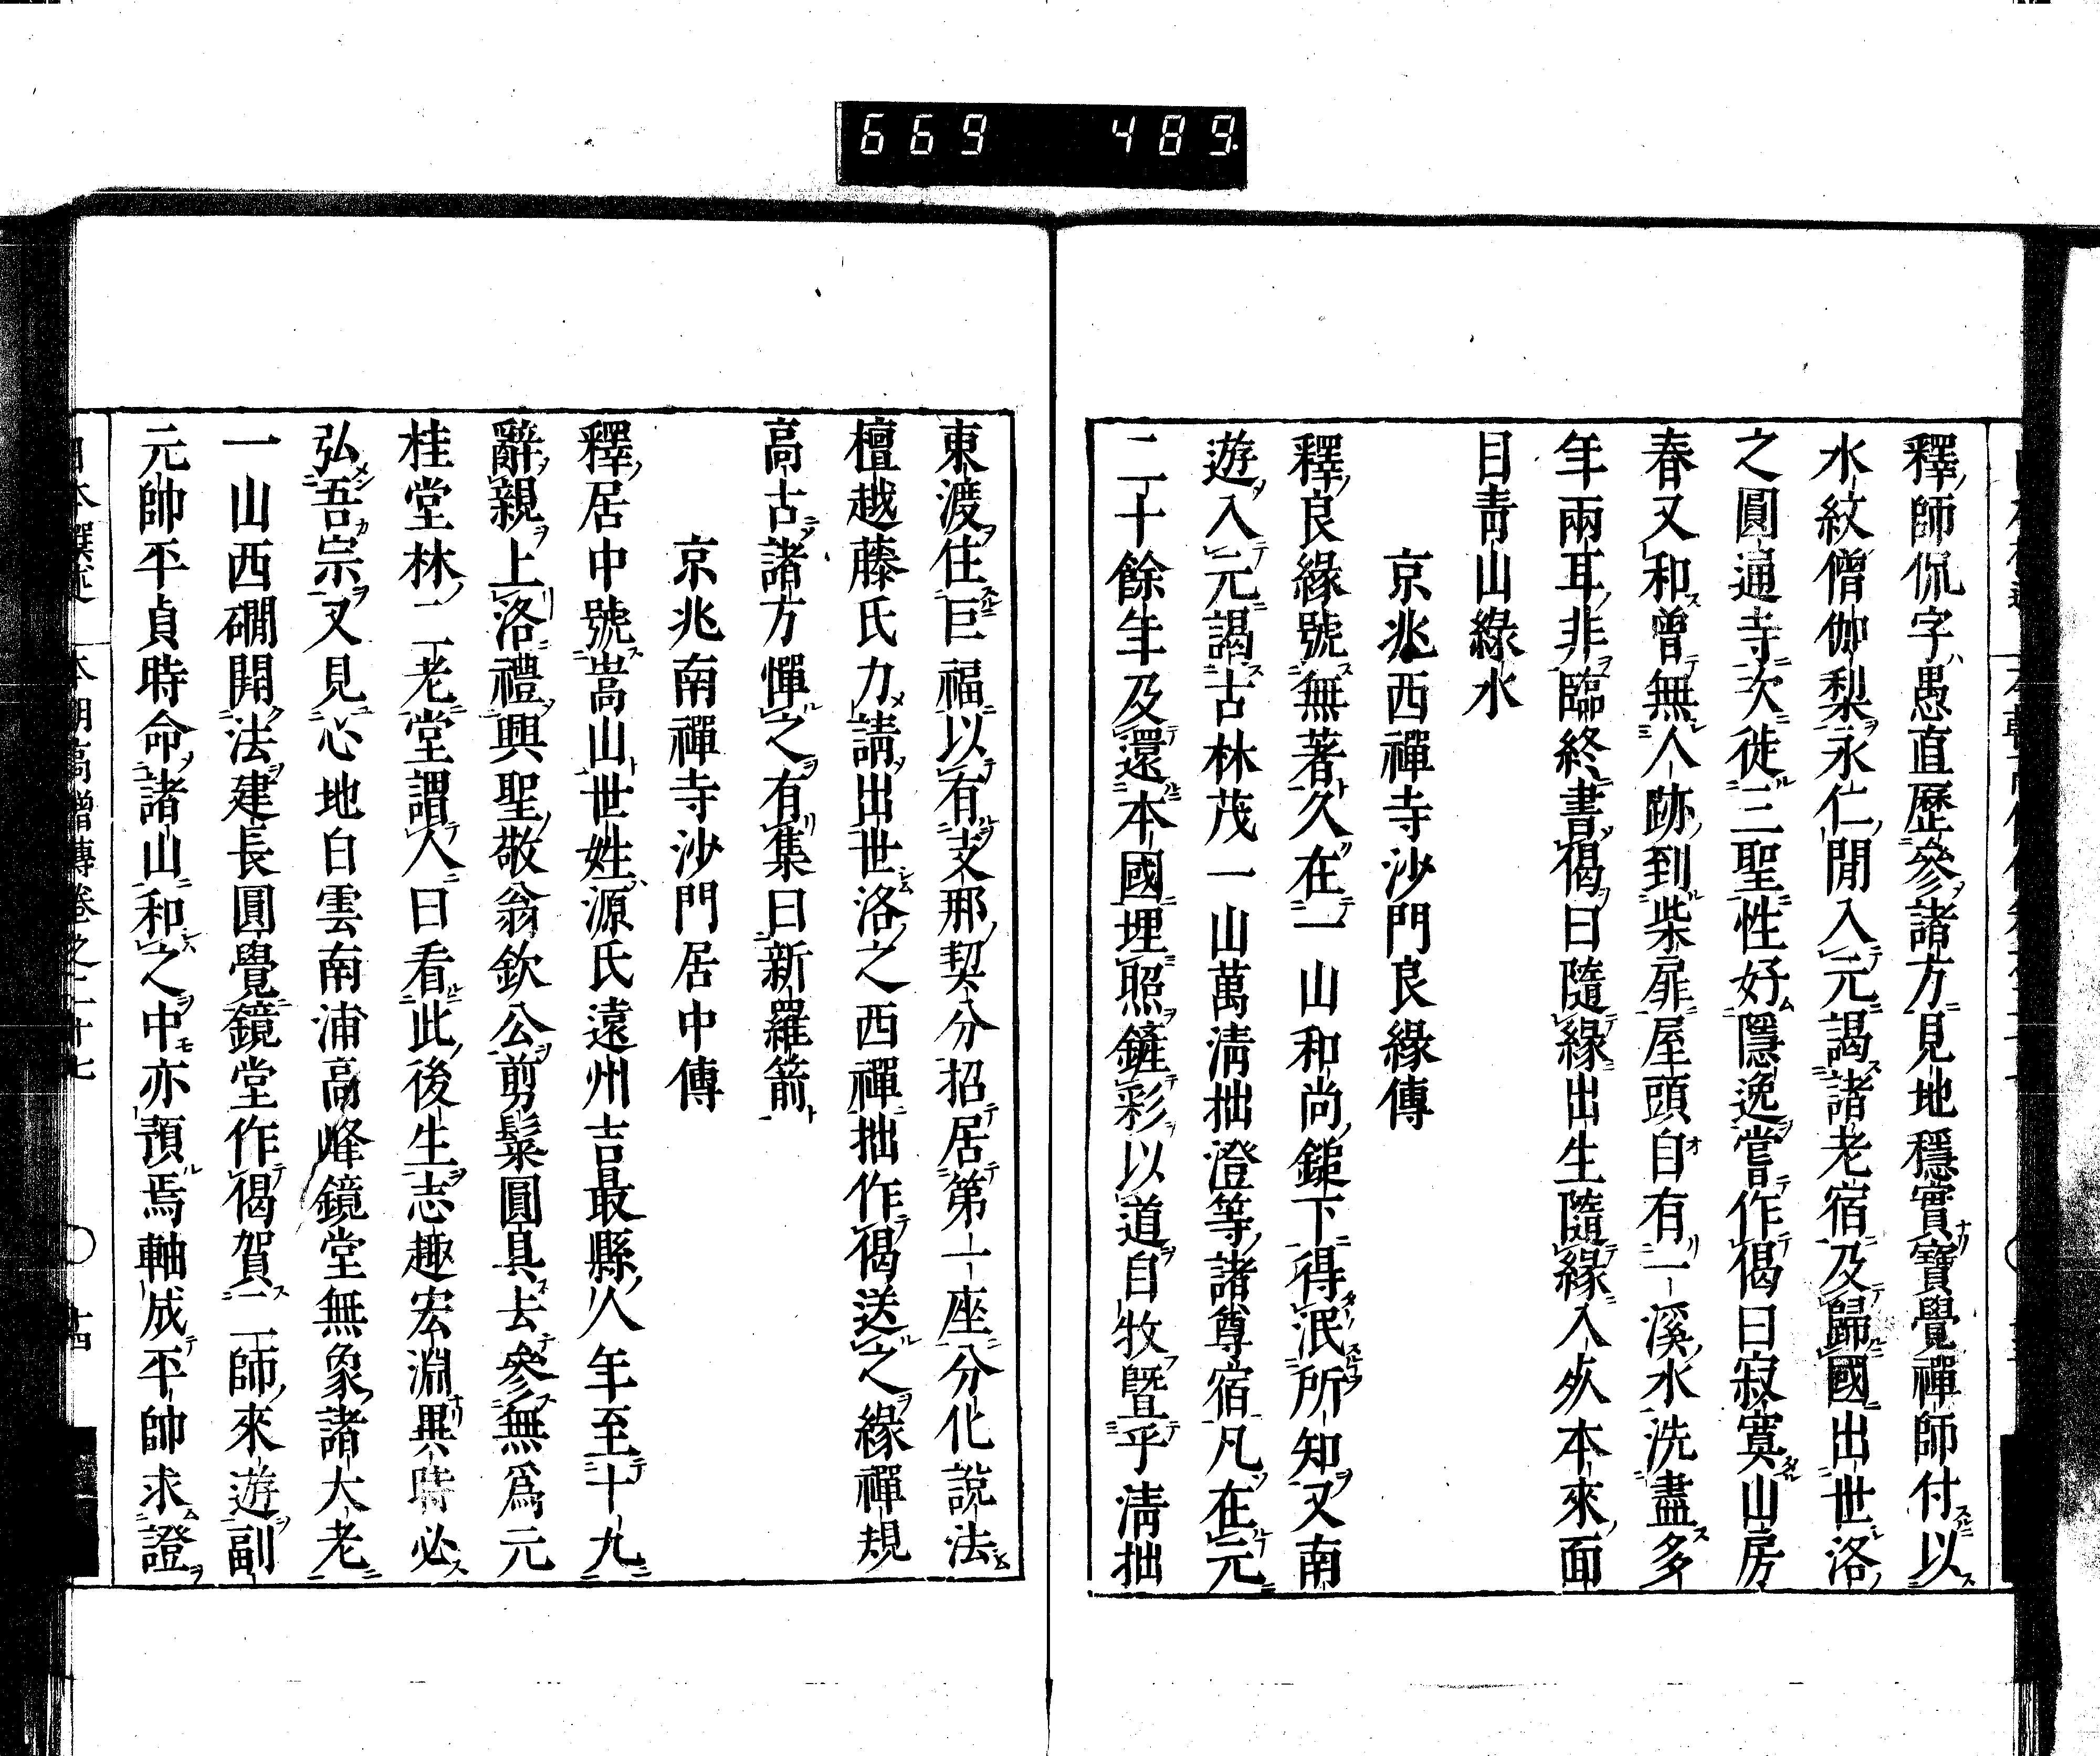 669 489
釋師侃字愚直歷參諸方見地穩實寶覺禪師付以
水紋僧伽梨永仁間入元謁諸老宿及歸國出世洛
之圓通寺次徙三聖性好隱逸嘗作偈曰寂寞山房
春又和曾無人跡到柴扉屋頭自有一溪水洗盡多
年兩耳非臨終書偈曰隨緣出生隨緣入灰本來面
目靑山綠水
京兆西禪寺沙門良緣傳
釋良緣號無著久在一山和尚鎚下得泯所知又南
遊入元謁古林茂一山萬淸拙澄等諸尊宿凡在元
二十餘年及還本國埋照鏟彩以道自牧曁乎淸拙
東渡住巨福以有支那契分招居第一座分化說法
檀越藤氏力請出世洛之西禪拙作偈送之緣禪規
高古諸方憚之有集曰新羅箭
京兆南禪寺沙門居中傳
釋居中號嵩山世姓源氏遠州吉最縣人年至十九
辭親上洛禮興聖敬翁欽公剪鬀圓具去參無爲元
桂堂林二老堂謂人曰看此後生志趣宏淵異時必
弘吾宗又見心地白雲南浦高峰鏡堂無象諸大老
一山西礀開法建長圓覺鏡堂作偈賀二師來遊副
元帥平貞時命諸山和之中亦預焉軸成平帥求證
本朝高僧傳卷之二十七